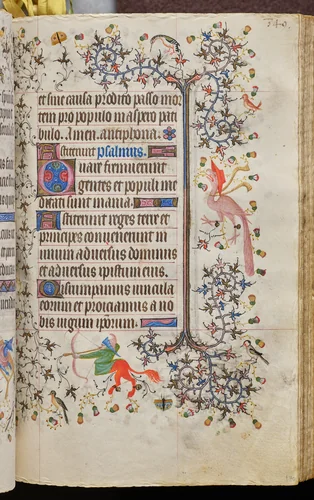 240.
et sine causa p̄dito passo mor
tem pro populo in aspero pati
bulo. Amen. antiphona.
Astiterunt psalmus.
Quare fremuerunt
gentes et populi me
ditati sunt inania.
Astiterunt reges terre et
principes convenerunt in
unum adversus dominum
et adversus xpistum eius.
Disrumpamus vincula
eorum et proiciamus a no
bis iugum ipsorum.